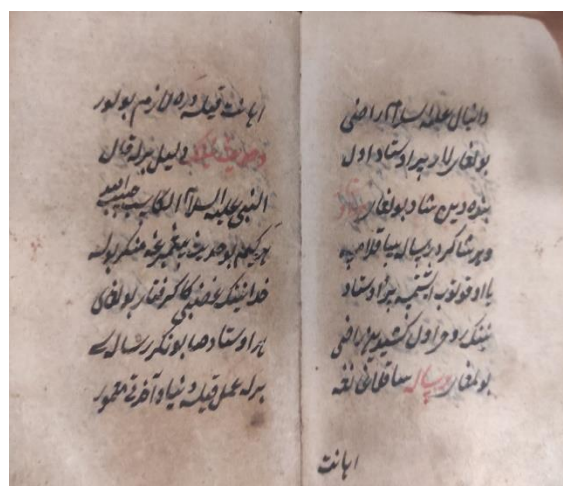 دانیال علیه السلام راضی
بولغایلار هر اوستاد اول
بنده دین شاد بولغای
و هر شاکرد رساله ساقلامیه
یا اوقوتوب ایشتمسه پیر اوستاد
نینک روحی اول کشیدین راضی
بولمغای رساله ساقلاغانغه
اهانت
اهانت قیلسه لازم بولور
دلیل برله قال
النبی علیه السلام الکاسب حبیب الله
هر کیم بو حدیث پیغمبرغه منکر بولسه
خدانینک غضبی کا کرفتار بولغای
هر اوستاد رساله
برله عمل قیلسه دنیا و آخرتی معمور